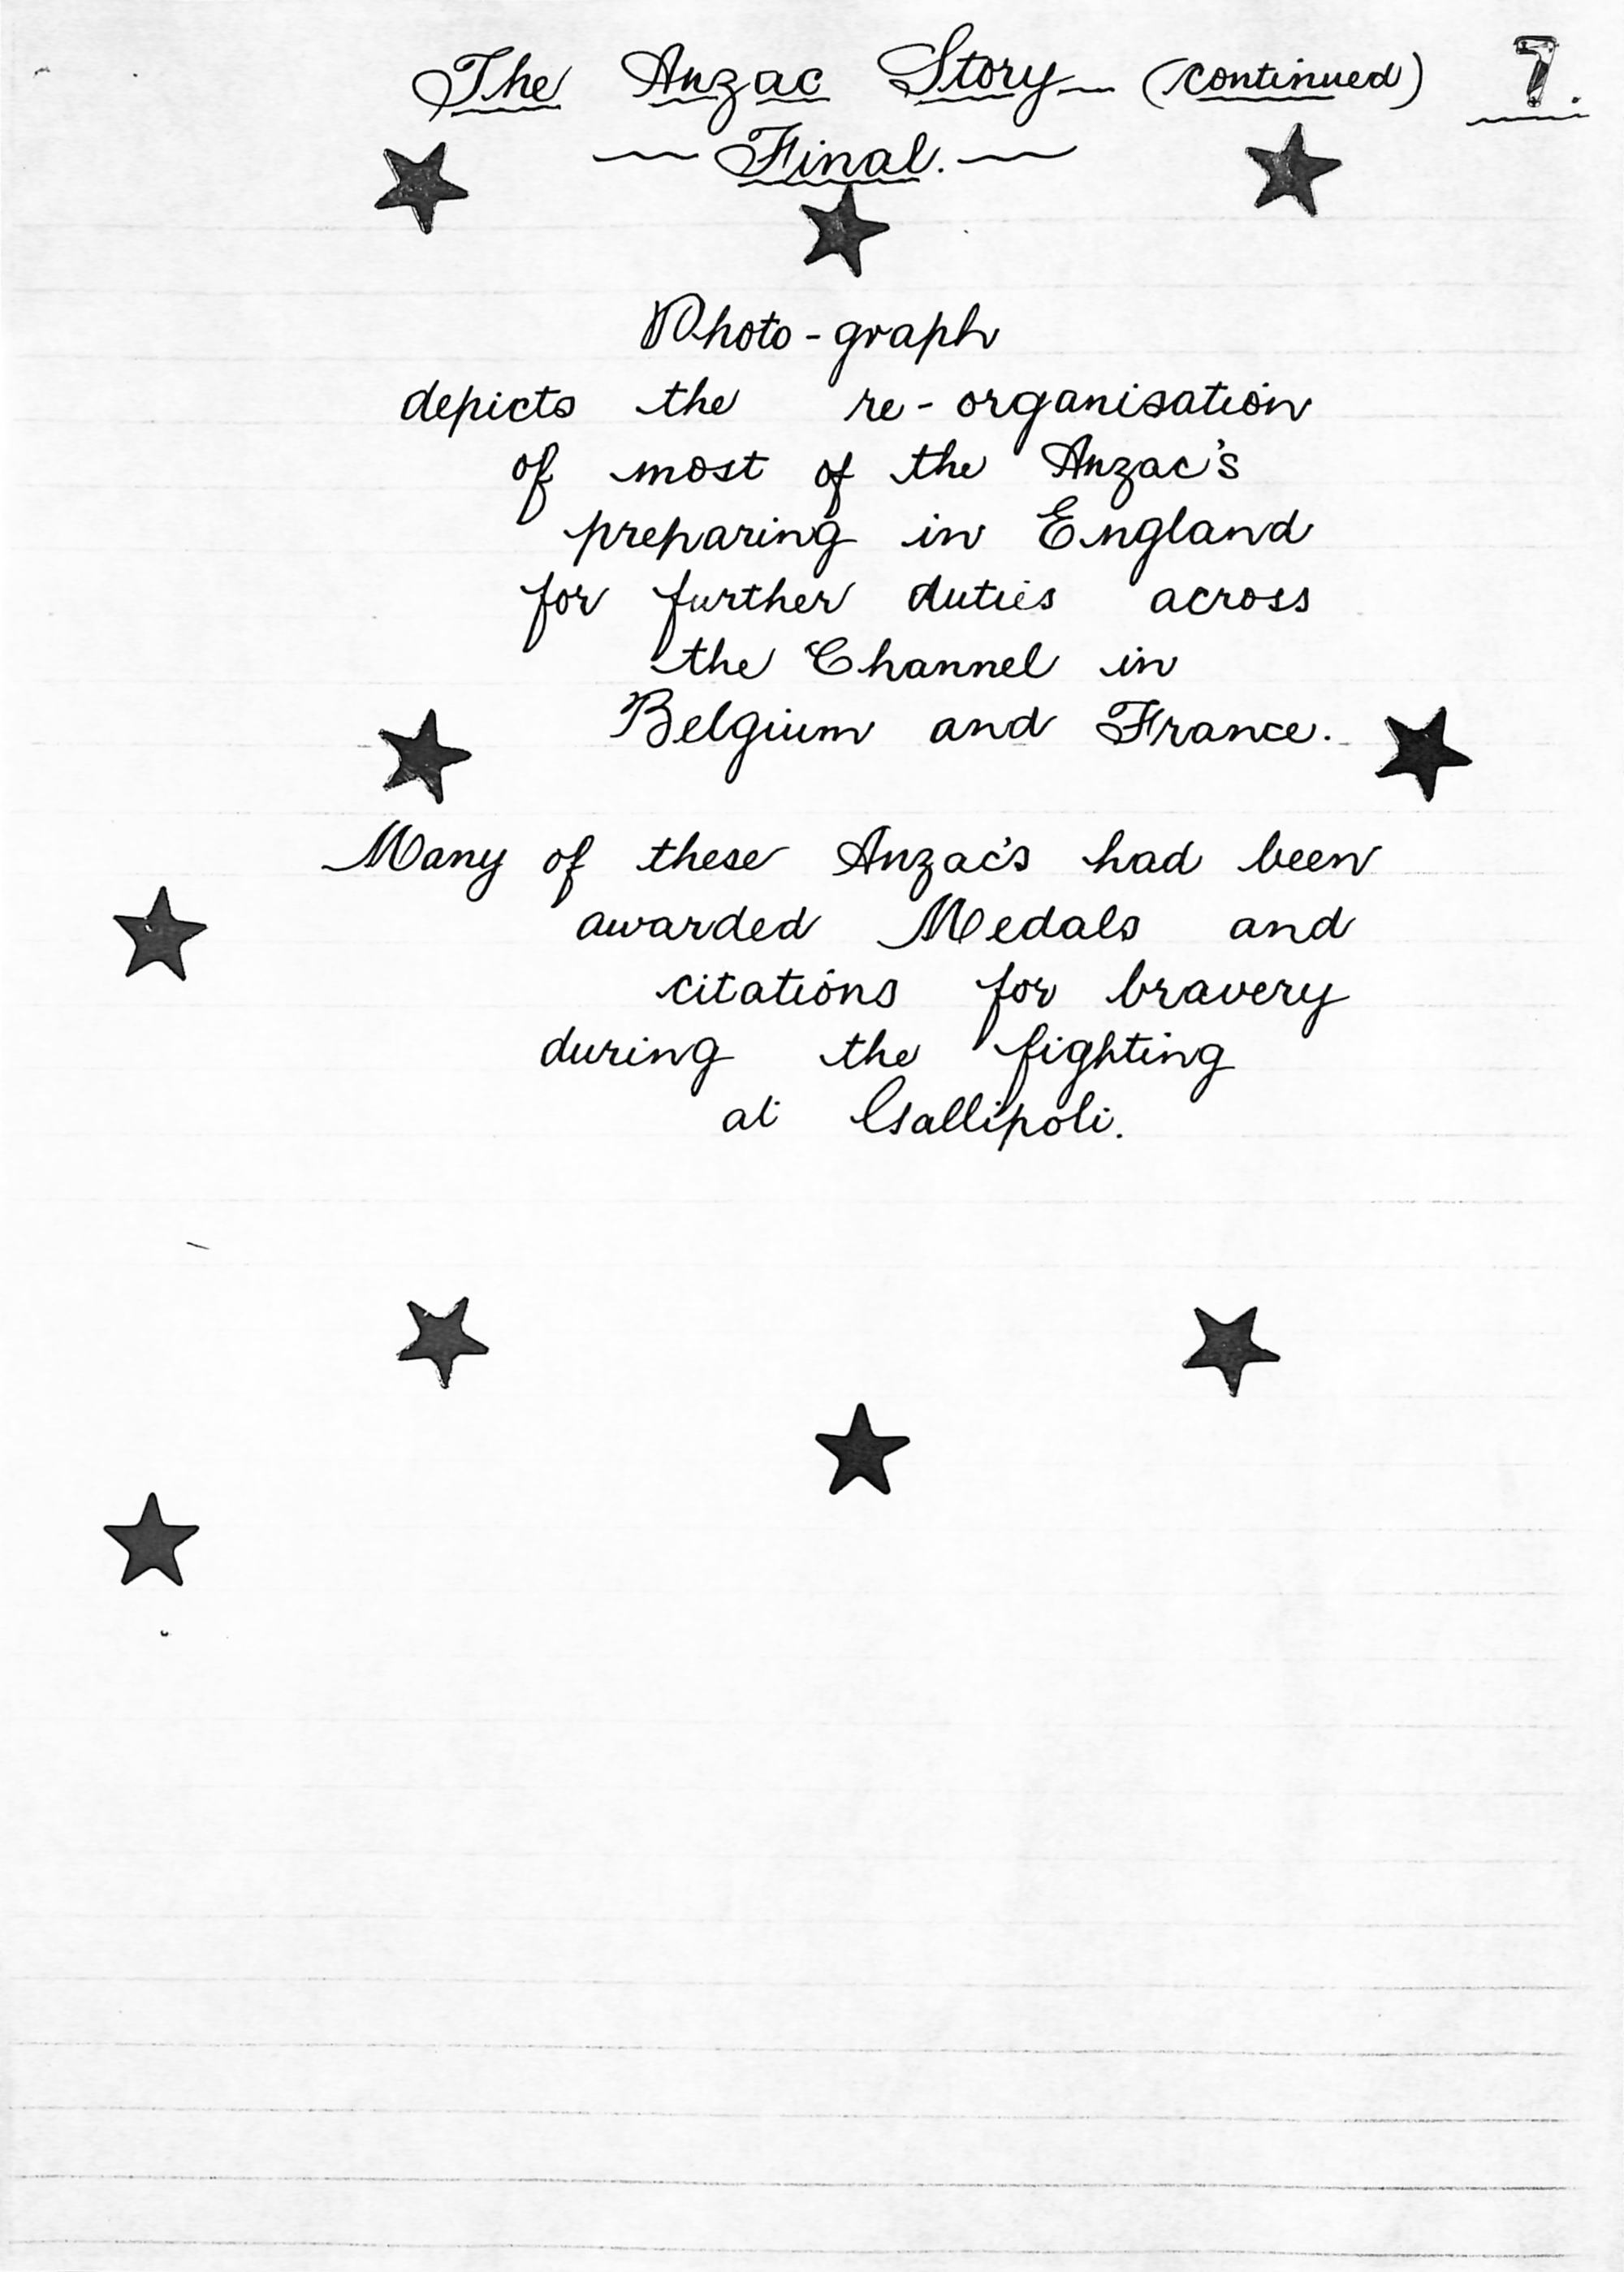 The Anzac Story (continued) 7.
Final.
Photo-graph
depicts the re-organisation
of most of the Anzac's
preparing in England
for further duties across
the Channel in
Belgium and France.
Many of these Anzac's had been
awarded Medals and
citations for bravery
during the fighting
at Gallipoli.